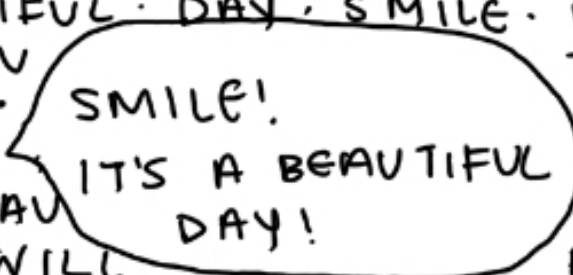 DAY. SMILE.
SMILE!
IT'S A BEAUTIFUL
DAY!